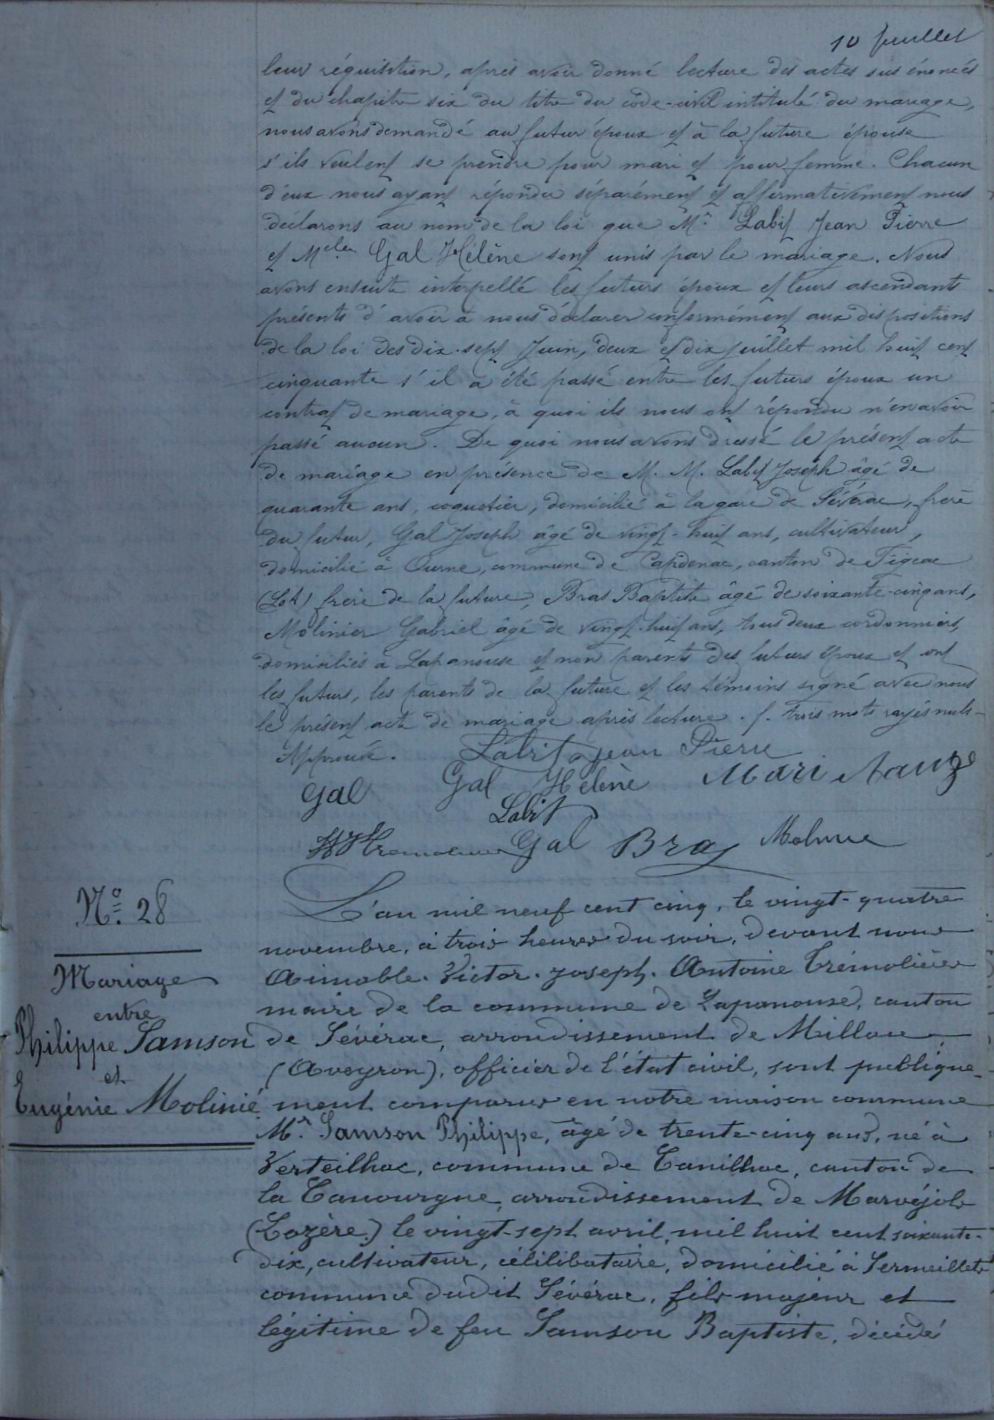 10 feuillet
leur réquisition, après avoir donné lecture des actes sus énoncés
et du chapitre six du titre du code-civil intitulé du mariage,
nous avons demandé au futur époux et à la future épouse
s'ils veulent se prendre pour mari et pour femme. Chacun
d'eux nous ayant répondu séparément et affirmativement nous
déclarons au nom de la loi que Mr Labit Jean Pierre
et Melle Gal Hélène sont unis par le mariage. Nous
avons ensuite interpellé les futurs époux et leurs ascendants
présents d'avoir à nous déclarer conformément aux dispositions
de la loi des dix-sept Juin, deux et dix juillet mil huit cent
cinquante s'il a été passé entre les futurs époux un
contrat de mariage, à quoi ils nous ont répondu n'en avoir
passé aucun. De quoi nous avons dressé le présent acte
de mariage en présence de M. M. Labit Joseph âgé de
quarante ans, coquetier, domicilié à la gare de Sévérac, frère
du futur, Gal Joseph âgé de vingt-huit ans, cultivateur,
domicilié à Ourne, commune de Capdenac, canton de Figeac
(Lot) frère de la future, Bras Baptiste âgé de soixante-cinq ans,
Molinier Gabriel âgé de vingt-huit ans, tous deux cordonniers,
domiciliés à Lapanouse et non parents des futurs époux et ont
les futurs, les parents de la future et les témoins signé avec nous
le présent acte de mariage après lecture. f. trois mots rayés nuls-
Approuvé. Labit Jean Pierre
Gal Gal Hélène Mari Nauze
Labit
Gal Bras Molinié
No. 28
Mariage
entre
Philippe Samson
et
Eugénie Molinié
L'an mil neuf cent cinq, le vingt-quatre
novembre, à trois heures du soir, devant nous
Aimable. Victor. Joseph. Antoine Trémolières
maire de la commune de Lapanouse, canton
de Sévérac, arrondissement de Millau
(Aveyron), officier de l'état civil, sont publique-
ment comparus en notre maison commune
Mr Samson Philippe, âgé de trente-cinq ans, né à
Verteilhac, commune de Banilhac, canton de
la Canourgue, arrondissement de Marvéjols
(Lozère) le vingt-sept avril, mil huit cent soixante-
dix, cultivateur, célilibataire, domicilié à Sermeillets
commune dudit Sévérac, fils majeur et
légitime de feu Samson Baptiste, décédé